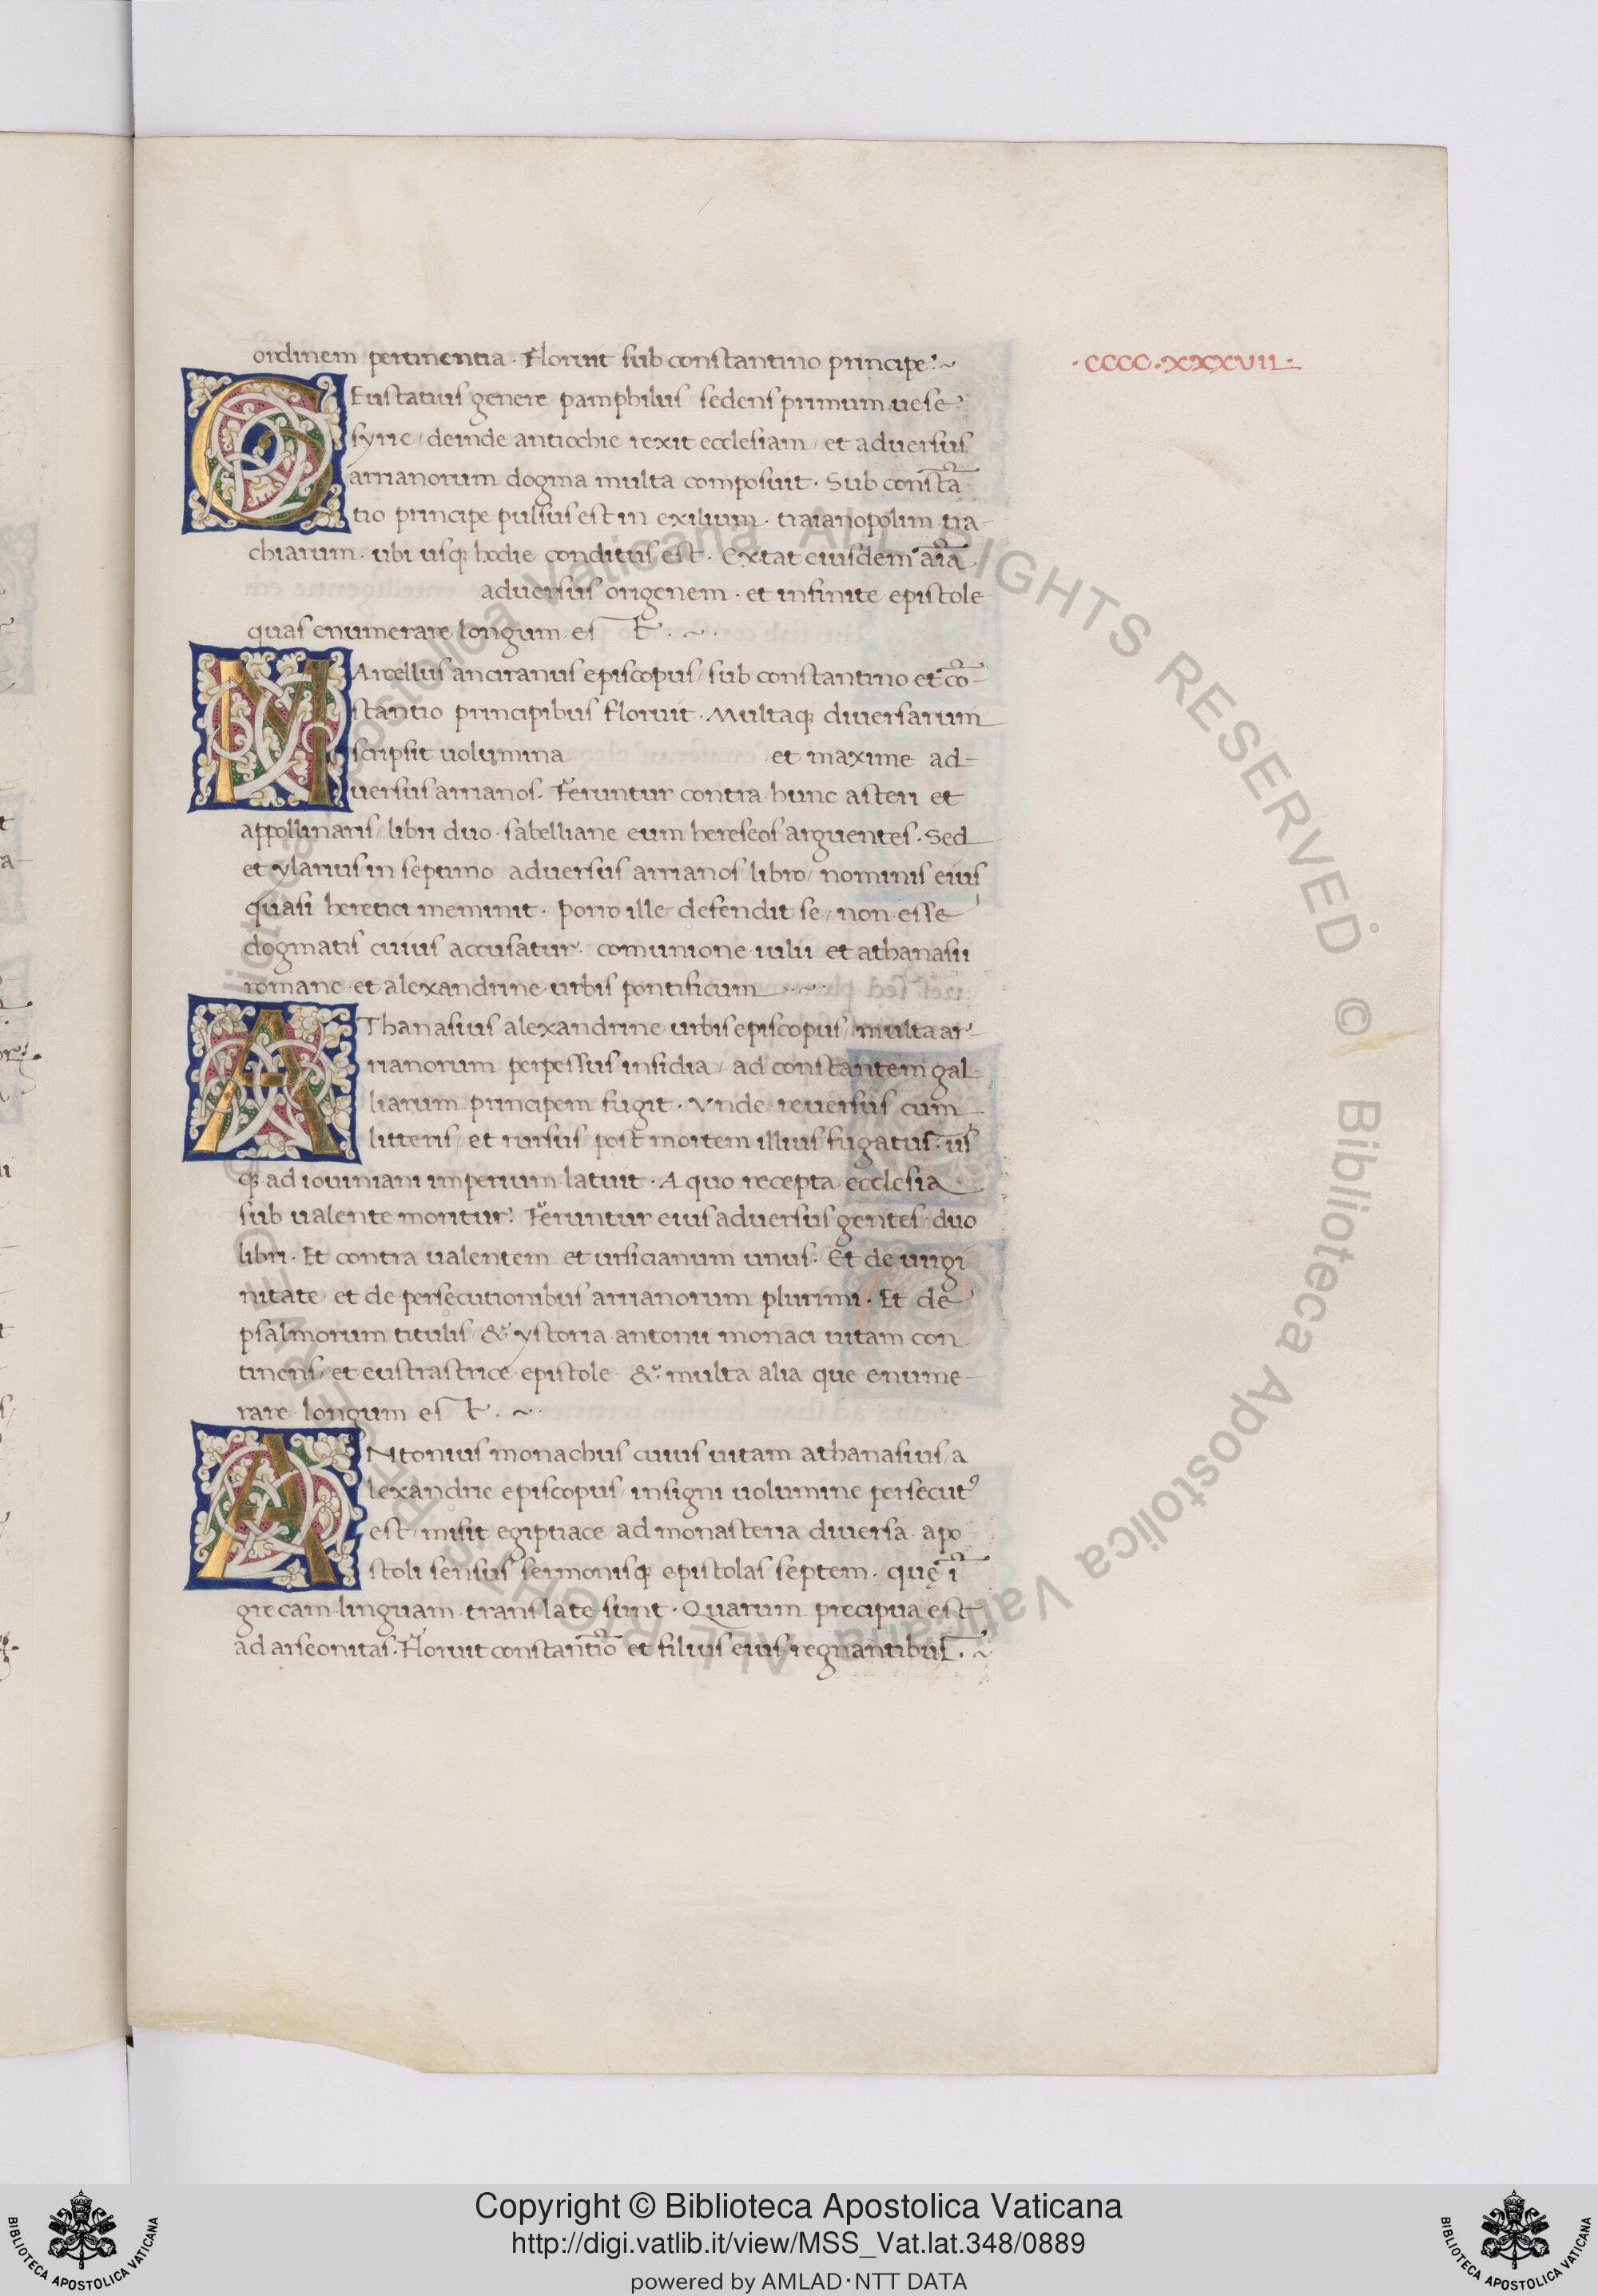 ordinem pertinentia · Floruit sub constantino principe ·~
·CCCC·XXXVII·
EUstatius genere pamphilus sedens primum uese
syrie / deinde antiochie rexit ecclesiam / et aduersus
arrianorum dogma multa composuit · Sub constā
tio principe pulsus est in exilium · traianopolim tra-
chiarum · ubi usq; hodie conditus est · Extat eiusdem aīā
aduersus origenem · et infinite epistole
quas enumerare longum est · ~ ·
MArcellus anciranus episcopus / sub constantino et cō-
stantio principibus floruit · Multaq; diuersarum
scripsit uolumina · et maxime ad-
uersus arrianos. Feruntur contra hunc asteri et
appollinaris / libri duo · sabelliane eum hereseos arguentes · Sed
et ylarius in septimo aduersus arrianos libro / nominis eius
quasi heretici meminit · porro ille defendit se / non esse
dogmatis cuius accusatur · comunione iulii et athanasii
romane et alexandrine urbis pontificum ·~·
AThanasius alexandrine urbis episcopus / multa ar-
rianorum perpessus insidia / ad constantem gal-
liarum principem fugit · Vnde reuersus cum
litteris / et rursus post mortem illius fugatus · us
q; ad iouiniani imperium latuit · A quo recepta ecclesia
sub ualente moritur. Feruntur eius aduersus gentes / duo
libri · Et contra ualentem et ursicianum unus · Et de uirgi
nitate et de persecutionibus arrianorum plurimi · Et de
psalmorum titulis / & ystoria antonii monaci uitam con
tinens / et eustrastrice epistole & multa alia que enume-
rare longum est · ~ ·
ANtonius monachus cuius uitam athanasius / a
lexandrie episcopus / insigni uolumine persecut9
est / misit egiptiace ad monasteria diuersa apo-
stoli sensus sermonisq; epistolas septem · quę ī
grecam linguam translate sunt · Quarum precipua est
ad arseonitas · Floruit constantīō et filius eius regnantibus · ~
© Biblioteca Apostolica Vaticana ALL RIGHTS RESERVED © Biblioteca Apostolica Vaticana ALL RIGHTS RESERVED
Copyright © Biblioteca Apostolica Vaticana
http://digi.vatlib.it/view/MSS_Vat.lat.348/0889
powered by AMLAD·NTT DATA
BIBLIOTECA APOSTOLICA VATICANA
BIBLIOTECA APOSTOLICA VATICANA